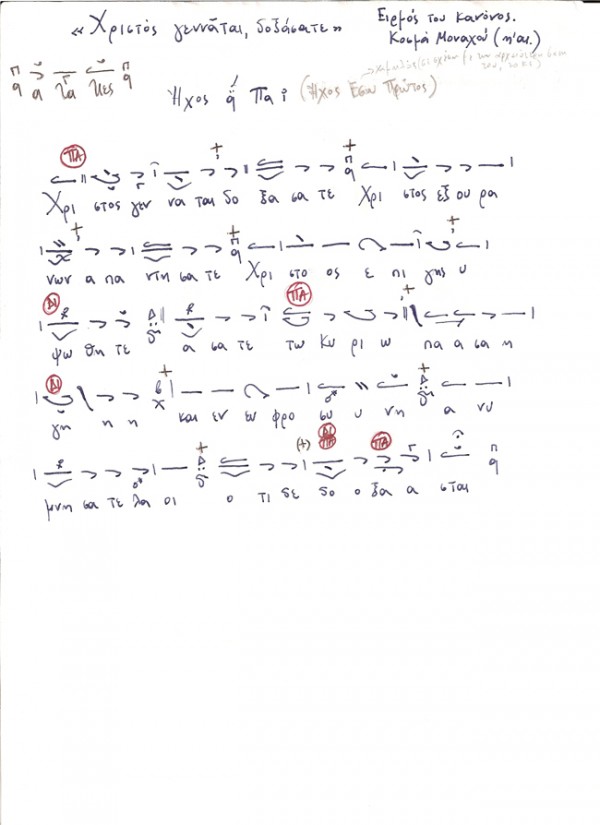 « Χριστός γεννᾶται, δοξάσατε »
Ειρμός του Κανόνος.
Κοσμά Μοναχού (η' αι.)
Ήχος ᾱ Πα
(Ήχος Έσω Πρώτος)
Πα
Χρι στος γεν να ται δο ξα σα τε Χρι στος εξ ου ρα
νων α πα ντη σα τε Χρι στο ος ε πι γης υ
Δι Πα
ψω θη τε α σα τε τω Κυ ρι ω πα α σα η
Δι
γη η η και εν ευ φρο συ υ νη α νυ
Δι Πα Πα
μνη σα τε λα οι ο τι δε δο ο ξα α σται